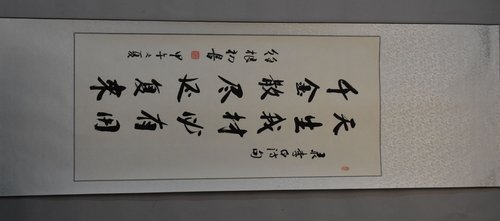 录李白诗句
天生我材必有用
千金散尽还复来
甲午之夏 徐根初书